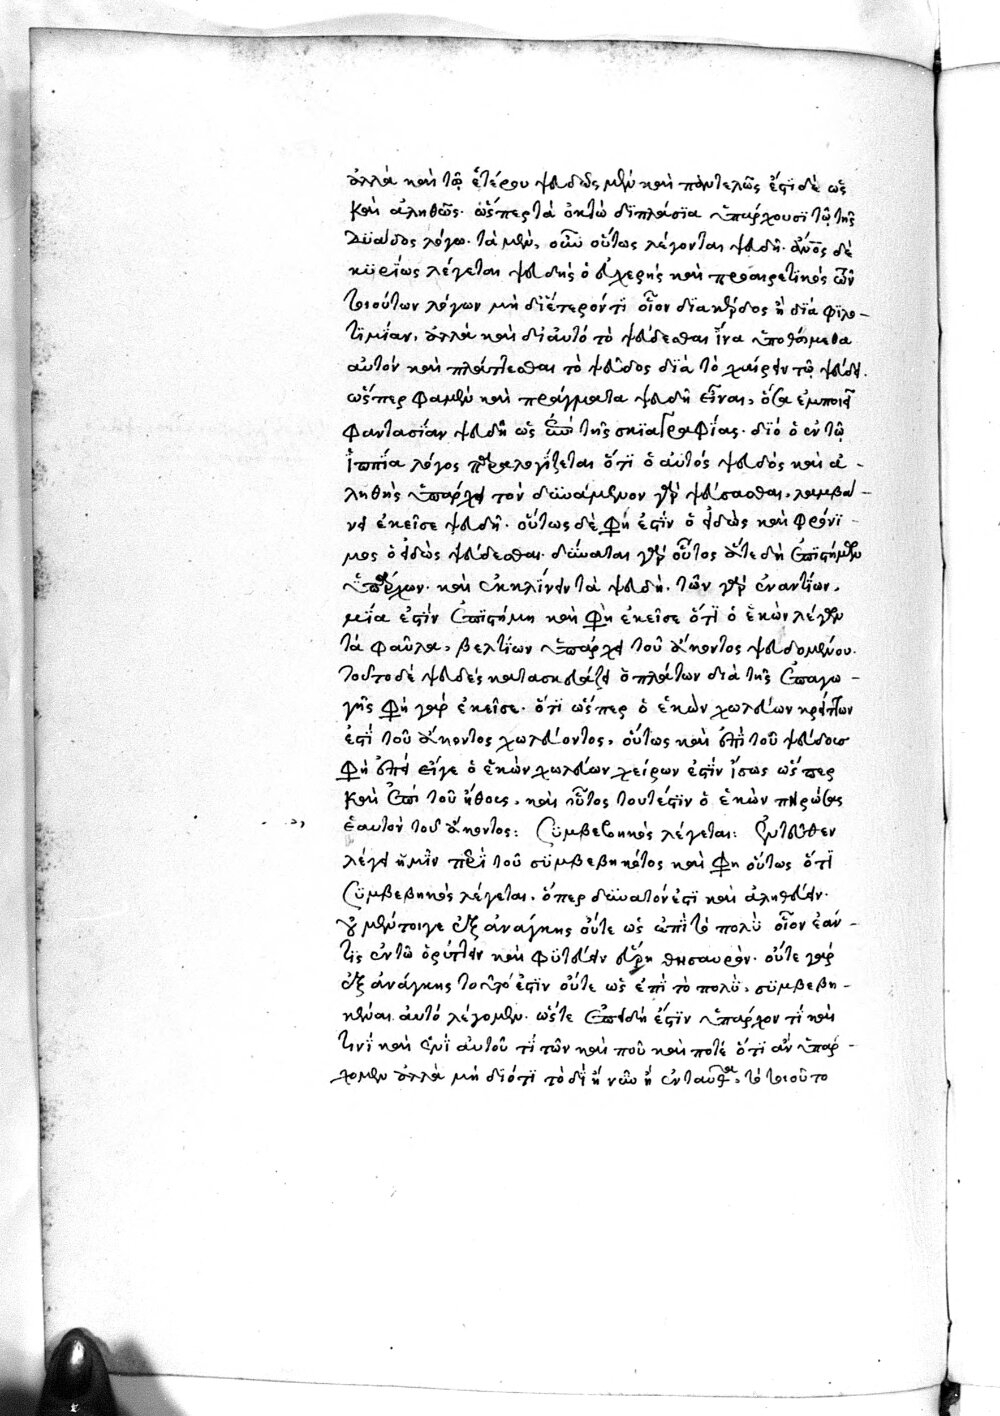 ἀλλὰ καὶ τῷ ἑτέρου ψευδῶς μὲν καὶ παντελῶς ἔστι δὲ ὡς
καὶ ἀληθῶς. ὥσπερ τὰ ὀκτὼ διπλάσια ὑπάρχουσι τῷ τῆς
δυάδος λόγω. τὰ μὲν οὖν οὕτως λέγονται ψευδῆ. ἄνος δὲ
κυρίως λέγεται ψευδὴς ὁ εὐχερὴς καὶ προαιρετικὸς τῶν
τοιούτων λόγων μὴ δι' ἕτερόν τι οἷον διὰ κέρδος ἢ διὰ φιλο-
τιμίαν, ἀλλὰ καὶ δι' αὐτὸ τὸ ψεύδεσθαι ἵνα ὑποθώμεθα
αὐτὸν καὶ πλάττεσθαι τὸ ψεῦδος διὰ τὸ χαίρειν τῷ ψεύδει.
ὥσπερ φαμὲν καὶ πράγματα ψευδῆ εἶναι, ὅσα ἐμποιεῖ
φαντασίαν ψευδῆ ὡς ἐπὶ τῆς σκιαγραφίας. διὸ ὁ ἐν τῷ
ἱππία λόγος παραλογίζεται ὅτι ὁ αὐτὸς ψευδὸς καὶ ἀ-
ληθὴς ὑπάρχει τὸν δυνάμενον γὰρ ψεύσασθαι, λαμβά-
νει ἐκεῖσε ψευδῆ. οὕτως δὲ φή ἐστιν ὁ εἰδὼς καὶ φρόνι-
μος ὁ εἰδὼς ψεύδεσθαι. δύναται γὰρ οὗτος ἅτε δὴ ἐπιστήμων
ὑπάρχων. καὶ ἐκκλίνειν τὰ ψευδῆ. τῶν γὰρ ἐναντίων,
μία ἐστὶν ἐπιστήμη καὶ φὴ ἐκεῖσε ὅτι ὁ ἑκὼν λέγων
τὰ φαῦλα, βελτίων ὑπάρχει τοῦ ἄκοντος ψευδομένου.
τοῦτο δὲ ψευδὲς κατασκευάζει ὁ πλάτων διὰ τῆς ἐπαγω-
γῆς φὴ γὰρ ἐκεῖσε. ὅτι ὥσπερ ὁ ἑκὼν χωλεύων κρείττων
ἐστὶ τοῦ ἄκοντος χωλεύοντος, οὕτως καὶ ἐπὶ τοῦ ψεύδους
φὴ ἐπεὶ εἴγε ὁ ἑκὼν χωλεύων χείρων ἐστὶν ἴσως ὥσπερ
καὶ ἐπὶ τοῦ ἤθους, καὶ οὗτος τουτέστιν ὁ ἑκὼν πηρώσας
ἑαυτὸν τοῦ ἄκοντος: Συμβεβηκὸς λέγεται: Ἐντεῦθεν
λέγει ἡμῖν περὶ τοῦ συμβεβηκότος καὶ φη οὕτως ὅτι
Συμβεβηκὸς λέγεται, ὅπερ δυνατόν ἐστι καὶ ἀληθεύειν.
οὐ μέντοιγε ἐξ ἀνάγκης οὔτε ὡς ἐπὶ τὸ πολὺ οἷον ἐάν
τις ἐν τῷ ὀρύττειν καὶ φυτεύειν εὕρη θησαυρὸν. οὔτε γὰρ
ἐξ ἀνάγκης τοῦτό ἐστιν οὔτε ὡς ἐπὶ τὸ πολὺ, συμβεβη-
κέναι αὐτὸ λέγομεν. ὥστε ἐπειδή ἐστιν ὑπάρχον τὶ καὶ
τινὶ καὶ ἑνὶ αὐτοῦ τὶ τῶν καὶ ποῦ καὶ ποτέ ὅτι ἂν ὑπάρ-
χομεν ἀλλὰ μὴ διότι τὸ δὶ ἢ νῦν ἢ ἐνταῦθα, τὸ τοιοῦτο